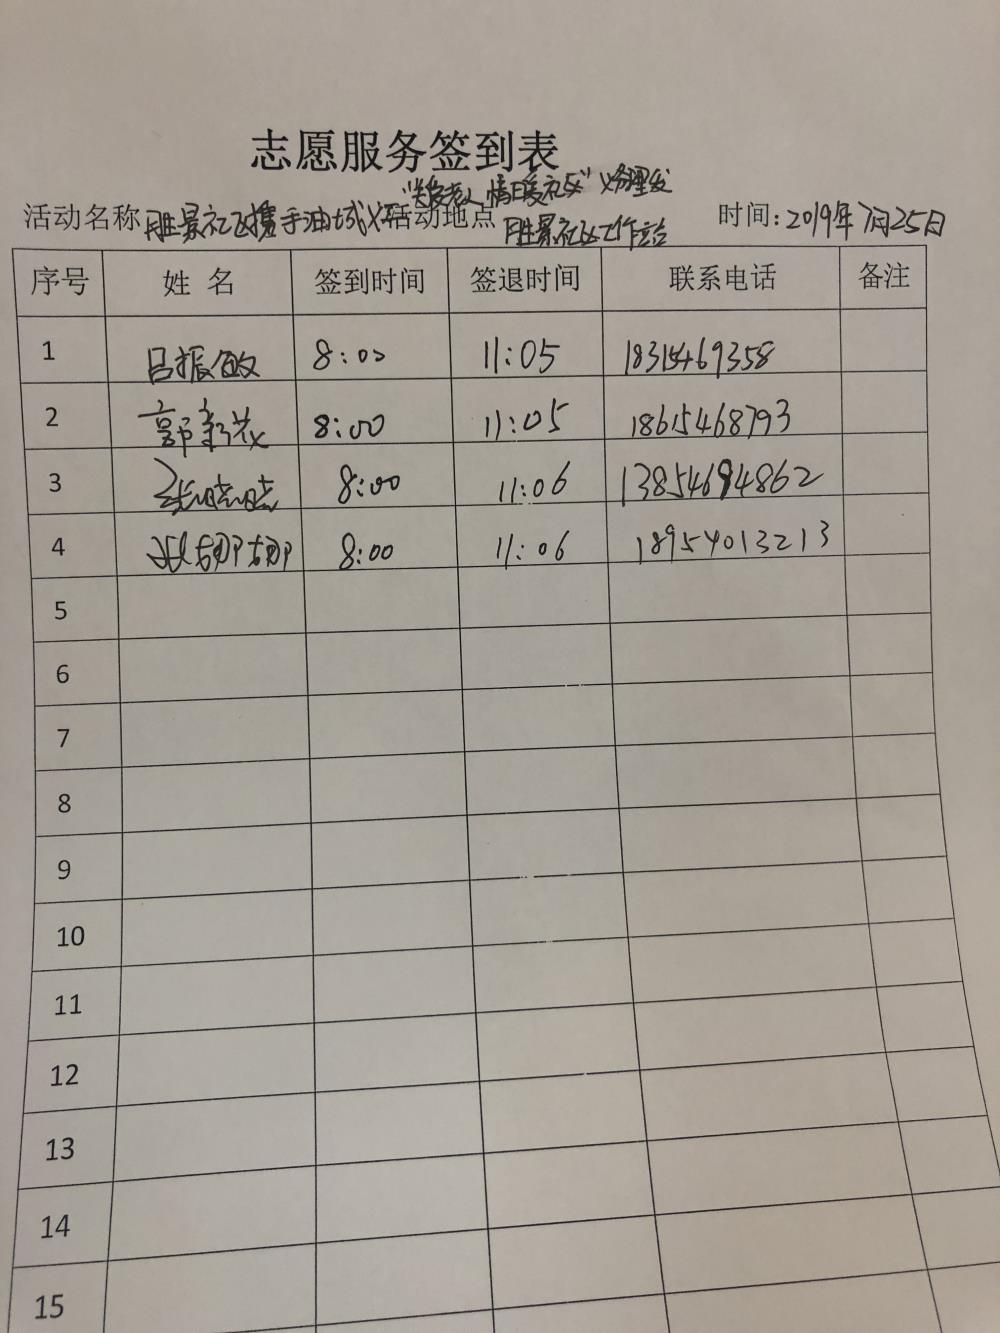 志愿服务签到表
"关爱老人 情暖社区"义务理发
活动名称 胜景社区携手油城义工 活动地点 胜景社区工作站 时间:2019年7月25日
序号 姓名 签到时间 签退时间 联系电话 备注
1 吕振敏 8:00 11:05 18315469358
2 郭新 8:00 11:05 18615468793
3 张晓晓 8:00 11:06 13854694862
4 娜娜 8:00 11:06 18954013213
5
6
7
8
9
10
11
12
13
14
15